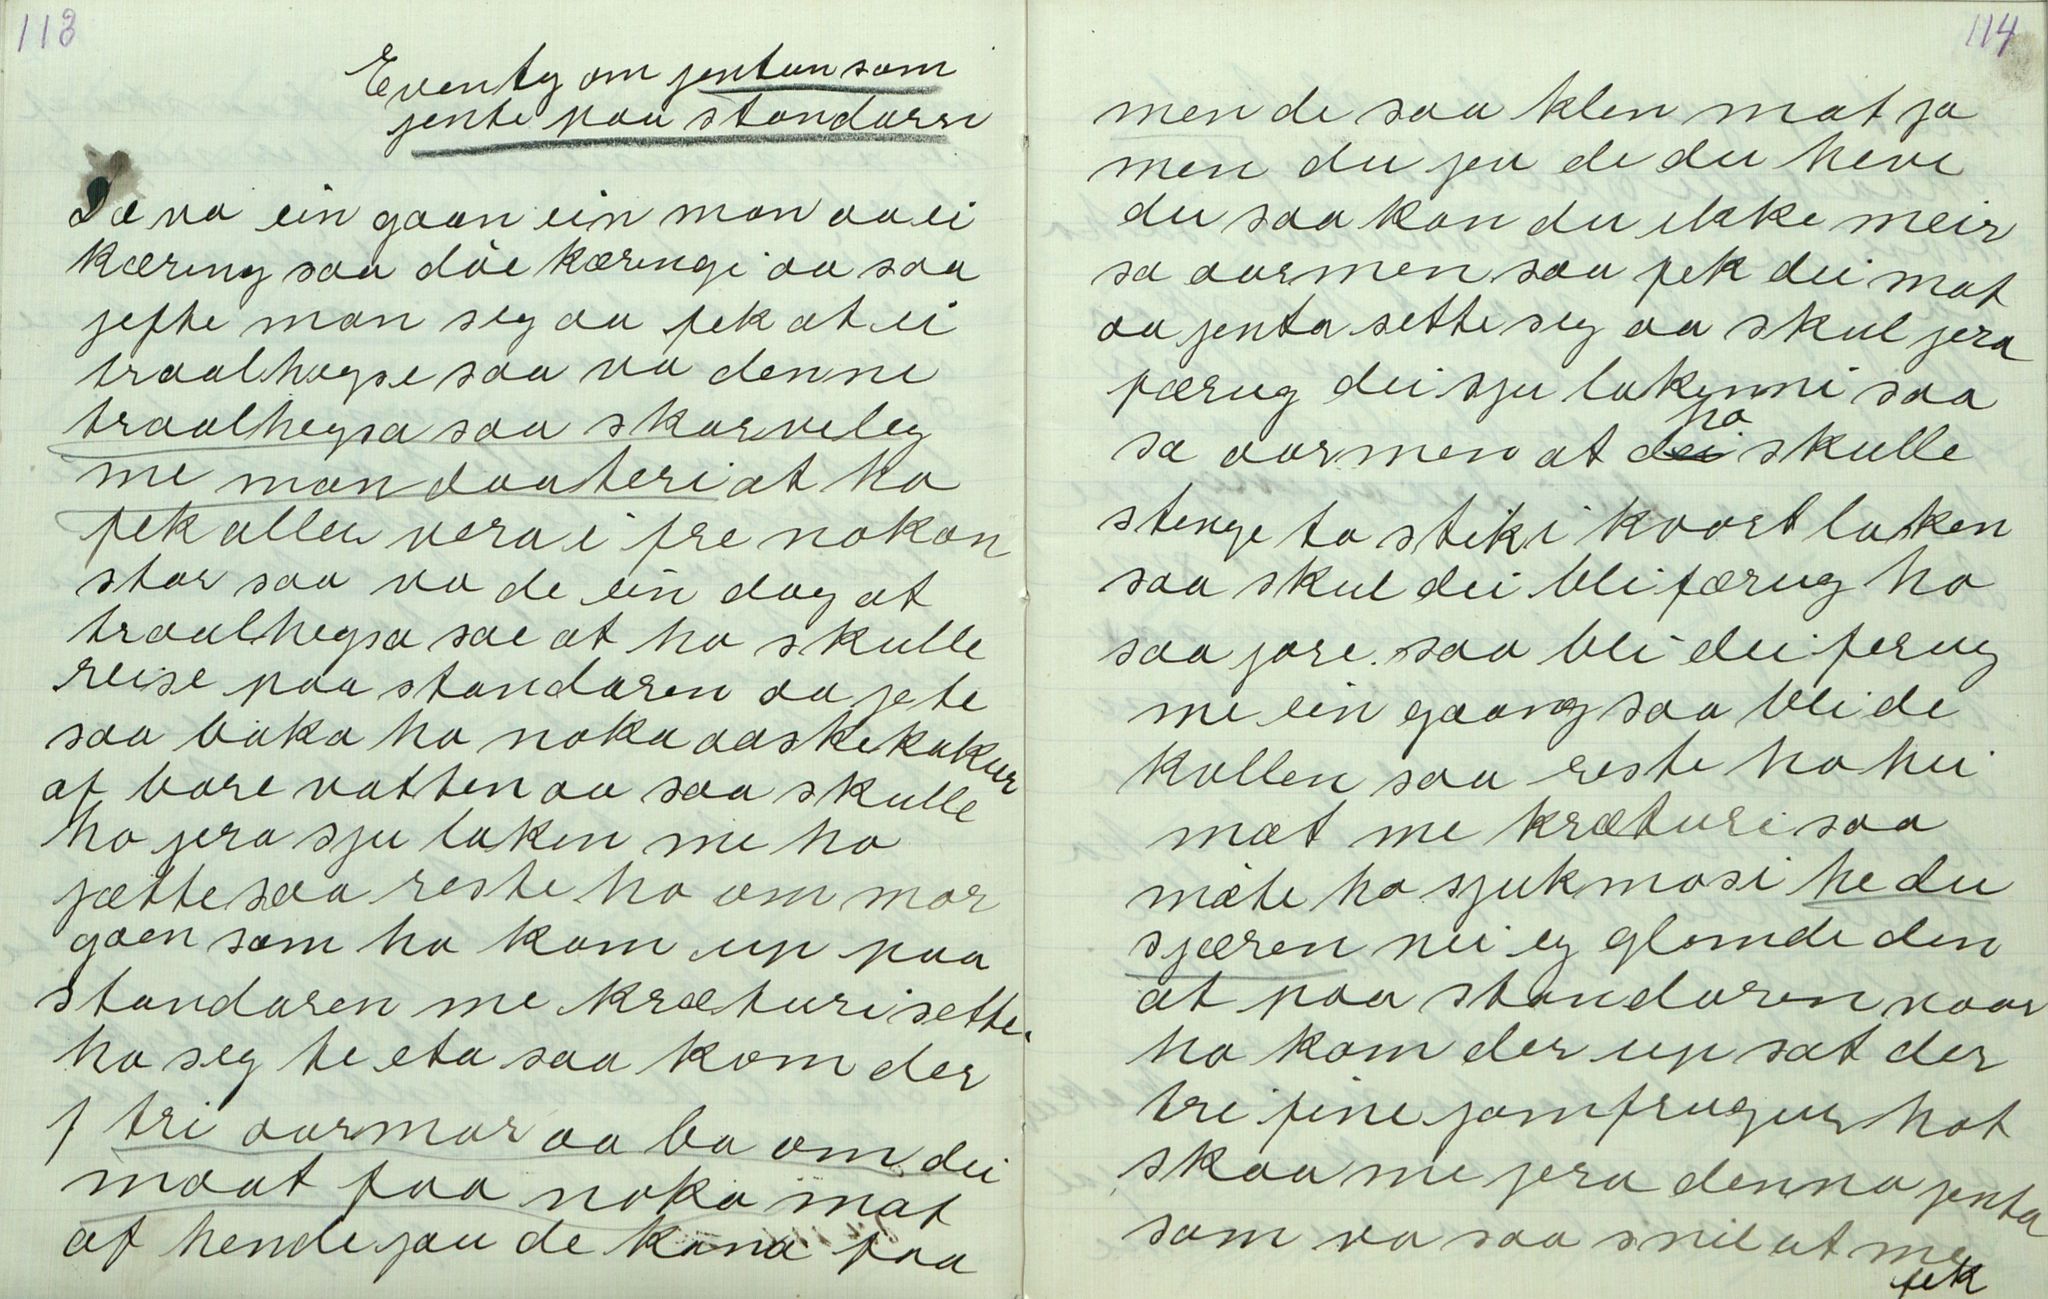 113
Eventy om jentun som
jente paa standarn
Dæ va ein gaan ein man aa ei
kæring saa døe kæringi aa saa
jefte man seg aa fek at ei
traalhegse saa va denne
traalhegsa saa skarveleg
me man daateri at ho
fek aller vera i fre nokon
star saa va de ein dag at
traalhegsa sae at ho skulle
reise paa standaren aa jete
saa baka ho noka aaskekakur
af bare vatten aa saa skulle
ho jera sju laken me ho
jætte saa reste ho om mor
gaen som ho kom up paa
standaren me kræturi sette
ho seg te eta saa kom der
tri aarmar aa ba om dei
maat faa noka mat
af hende jau de kana faa
114
men de saa klen mat ja
men du jer de du heve
du saa kan du ikke meir
sa aarmen saa fek dei mat
aa jenta sette seg aa skul jera
færug dei sju lakenni saa
sa aarmen at dei ho skulle
stenge ta stik i kvort laken
saa skul dei bli færug ho
saa jore. saa bli dei ferug
me ein gaang saa bli de
kvællen saa reste ho hei
mæt me kræturi saa
møte ho sjukmosi he du
sjæren nei eg glomde den
at paa standaren naar
ho kom der up sat der
tre fine jomfrugur hot
skaa me jera denna jenta
som va saa snil at me
fek